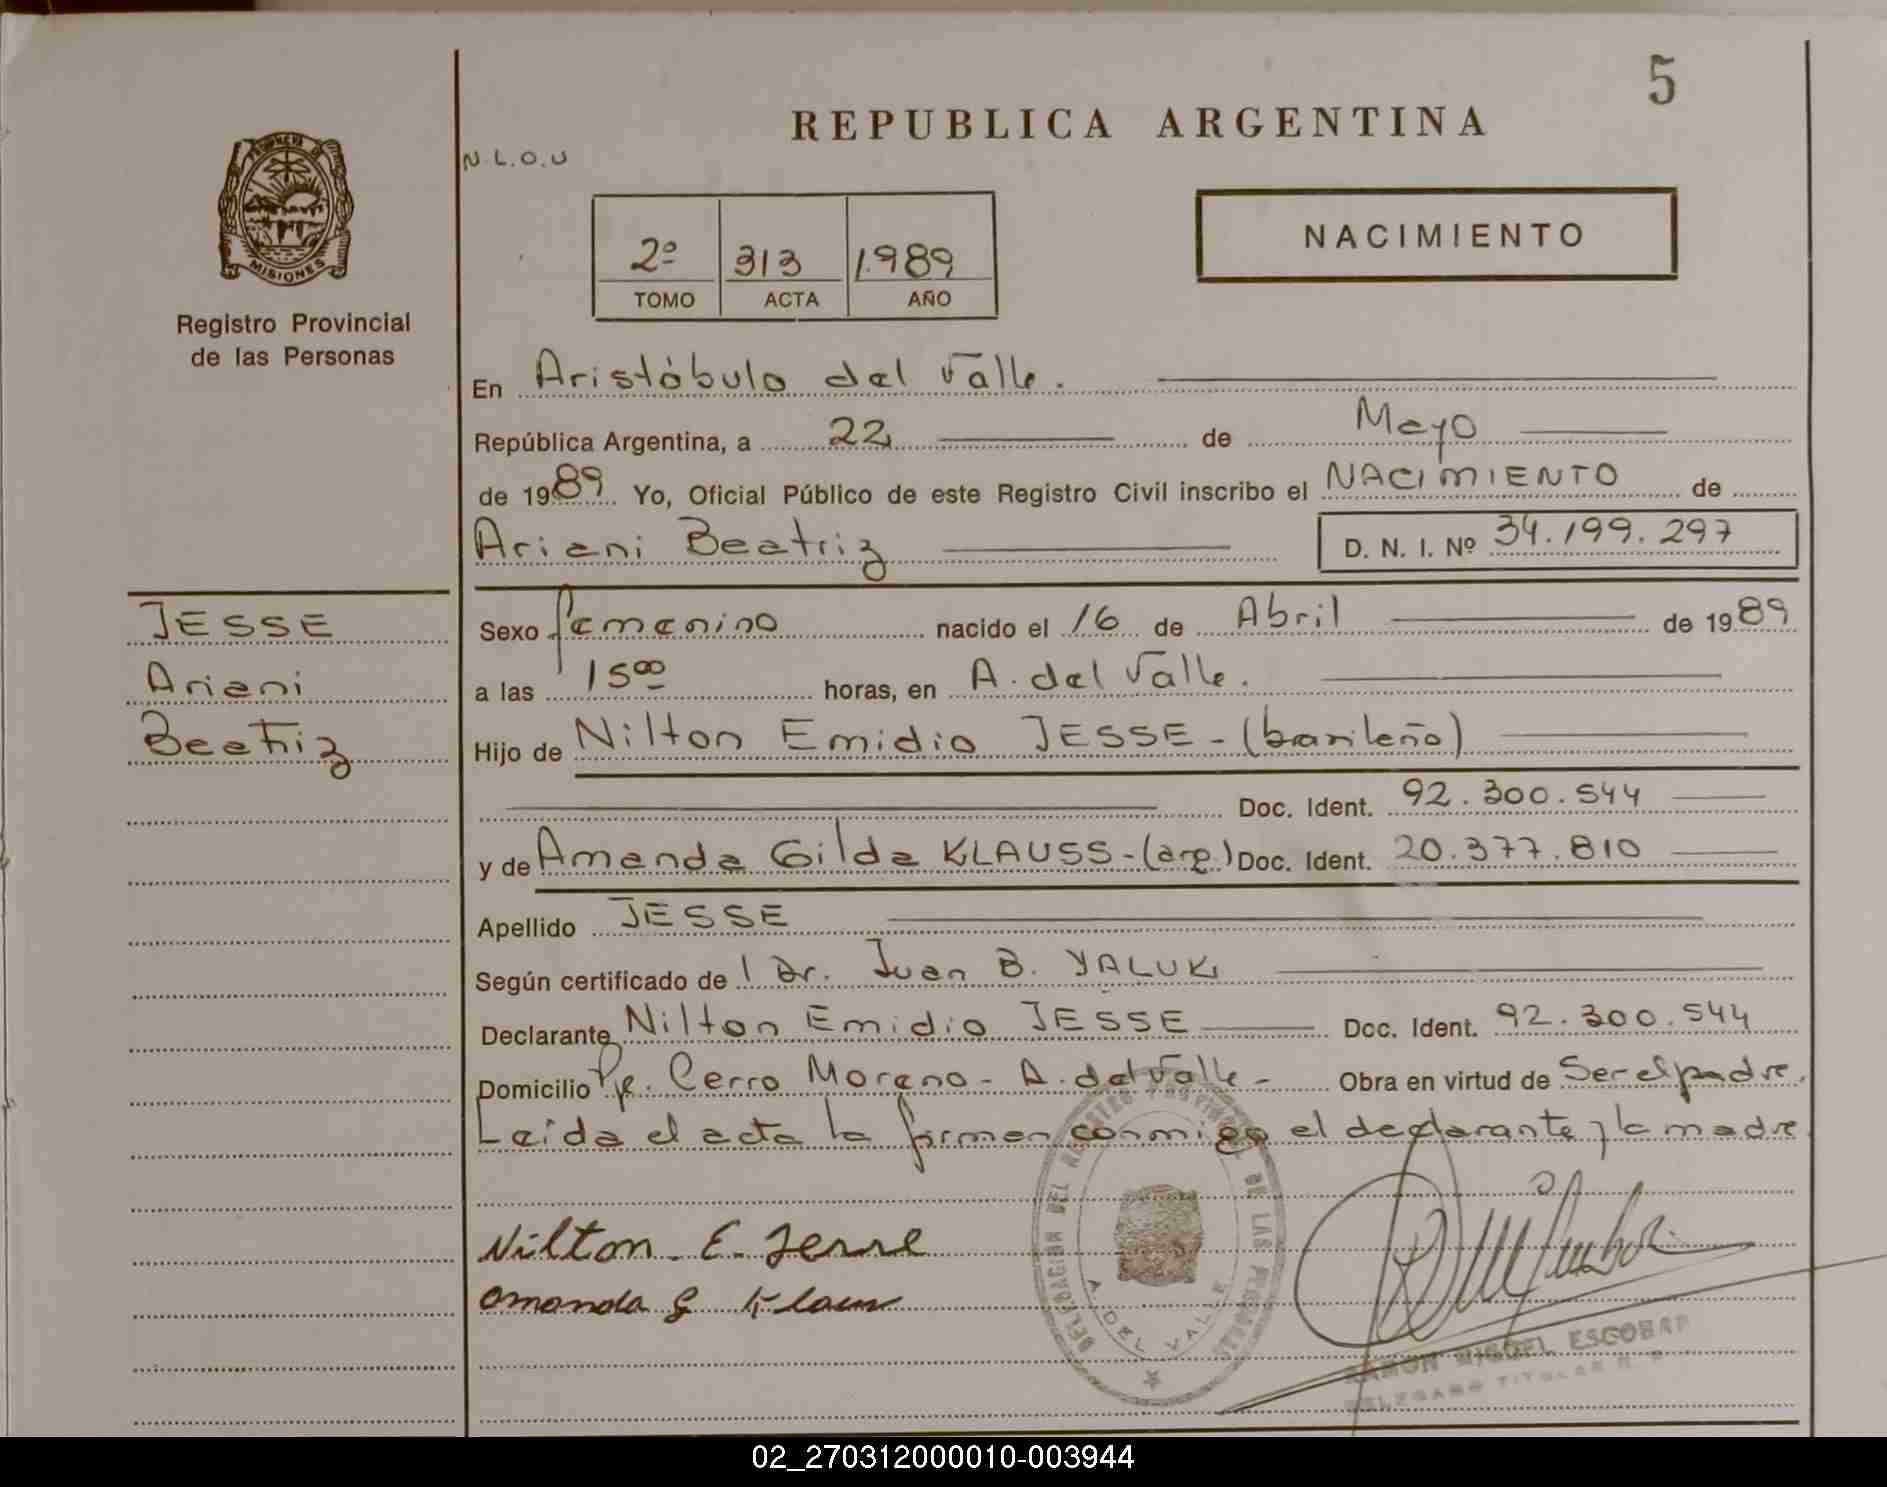 5
REPUBLICA ARGENTINA
N.L.O.U
PROVINCIA DE
MISIONES
Registro Provincial
de las Personas
2º 313 1.989
TOMO ACTA AÑO
NACIMIENTO
En Aristóbulo del Valle.
República Argentina, a 22 de Mayo
de 1989 Yo, Oficial Público de este Registro Civil inscribo el NACIMIENTO de
Ariani Beatriz D. N. I. Nº 34.199.297
JESSE
Ariani
Beatriz
Sexo femenino nacido el 16 de Abril de 1989
a las 15ºº horas, en A. del Valle.
Hijo de Nilton Emidio JESSE - (brasileño)
Doc. Ident. 92.300.544
y de Amanda Gilda KLAUSS - (arg.) Doc. Ident. 20.377.810
Apellido JESSE
Según certificado de Dr. Juan B. YALUK
Declarante Nilton Emidio JESSE Doc. Ident. 92.300.544
Domicilio Cerro Moreno - A. del Valle - Obra en virtud de Ser el padre.
Leida el acta la firman conmigo el declarante y la madre
Nilton E. Jesse
Amanda G Klauss
DELEGACION DEL REGISTRO PROVINCIAL DE LAS PERSONAS
A. DEL VALLE
RAMON MIGUEL ESCOBAR
DELEGADO TITULAR
02_270312000010-003944